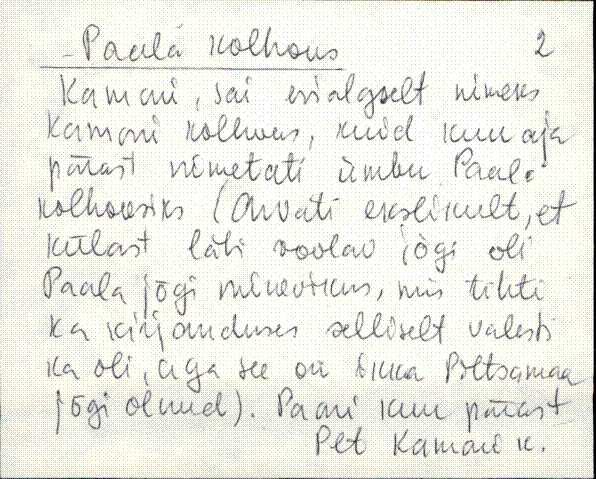 - Paala kolhoos 2
Kamari, sai esialgselt nimeks
Kamari kolhoos, kuid kuu aja
pärast nimetati ümber Paala
kolhoosiks (Arvati ekslikult, et
külast läbi voolav jõgi oli
Paala jõgi minevikus, mis tihti
ka kirjanduses selliselt valesti
ka oli, aga see on ikka Põltsamaa
jõgi olnud). Paari kuu pärast
Plt Kamari k.